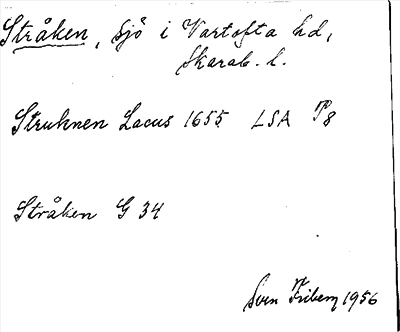 Stråken, sjö i Vartofta hd,
Skarab. l.
Struknen Lacus 1655 LSA P8
Stråken G 34
Sven Friberg 1956